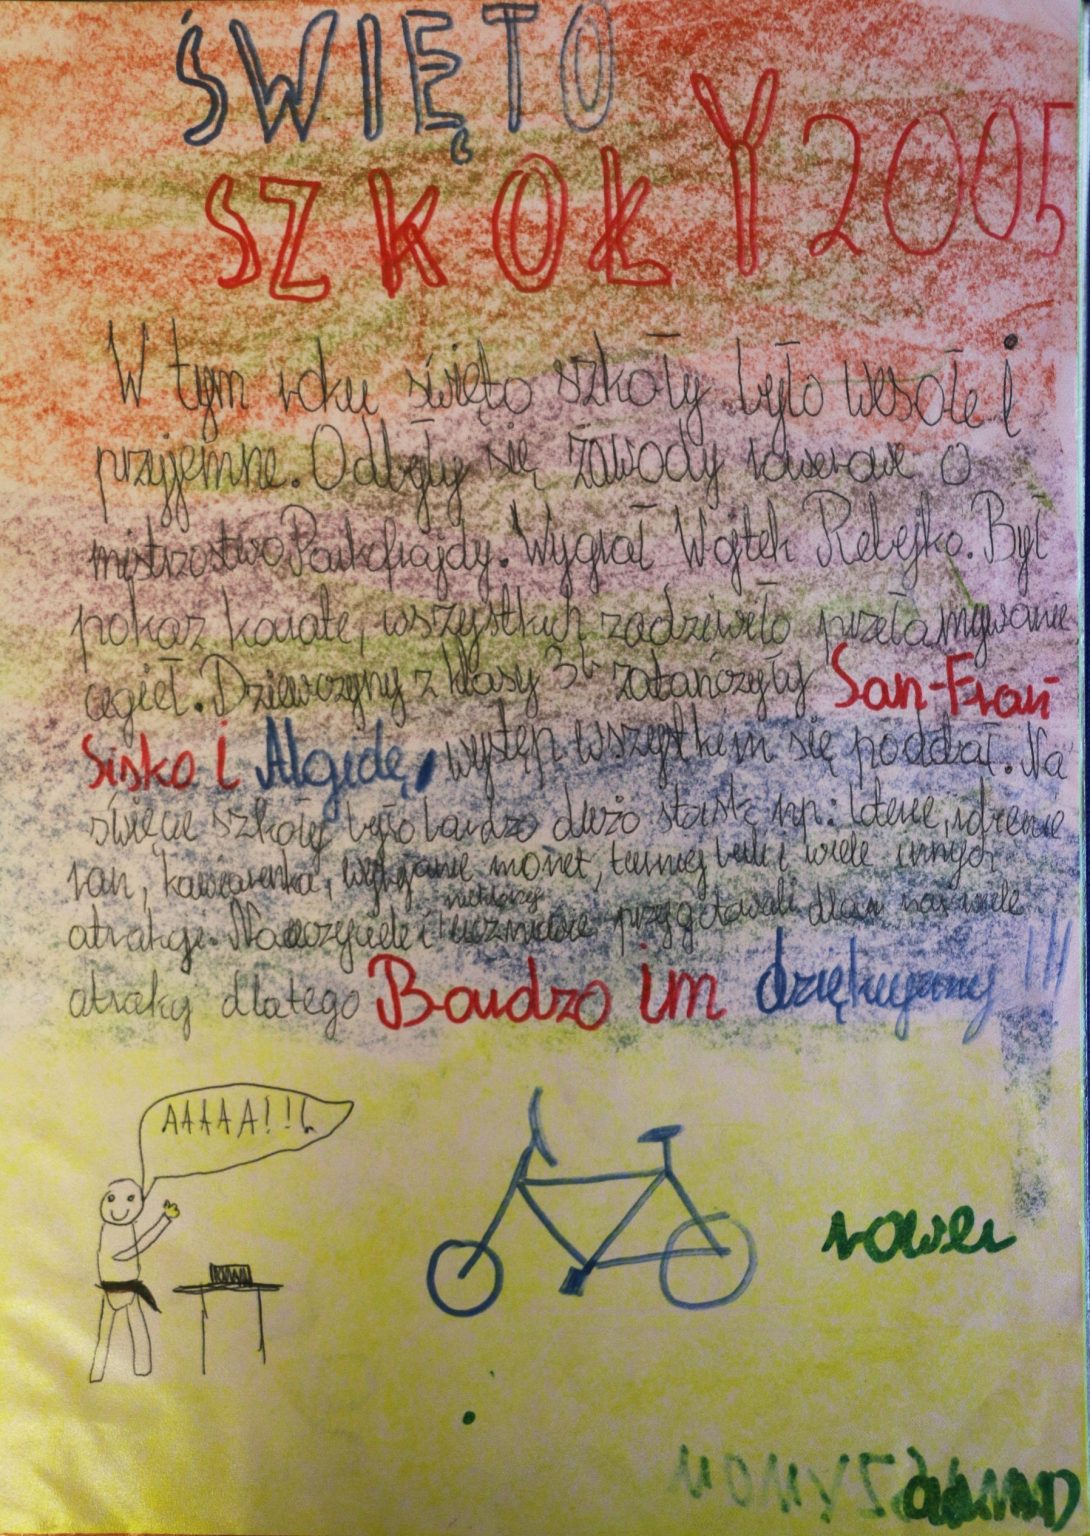 ŚWIĘTO
SZKOŁY 2005
W tym roku święto szkoły było wesołe i
przyjemne. Odbyły się zawody rowerowe o
mistrzostwo Parkofrajdy. Wygrał Wojtek Rebejko. Był
pokaz karate, wszystkich zadziwiło przełamywanie
cegieł. Dziewczyny z klasy 3b zatańczyły San-Fran
Sisko i Algidę, występ wszystkim się podobał. Na
święcie szkoły było bardzo dużo stoisk np:
ran, kawiarenka, monet, turniej i wiele innych
atrakcji. Nauczyciele i niektórzy uczniowie przygotowali dla nas wiele
atrakcji dlatego Bardzo im dziękujemy !!!
AAAAA!!!
rower